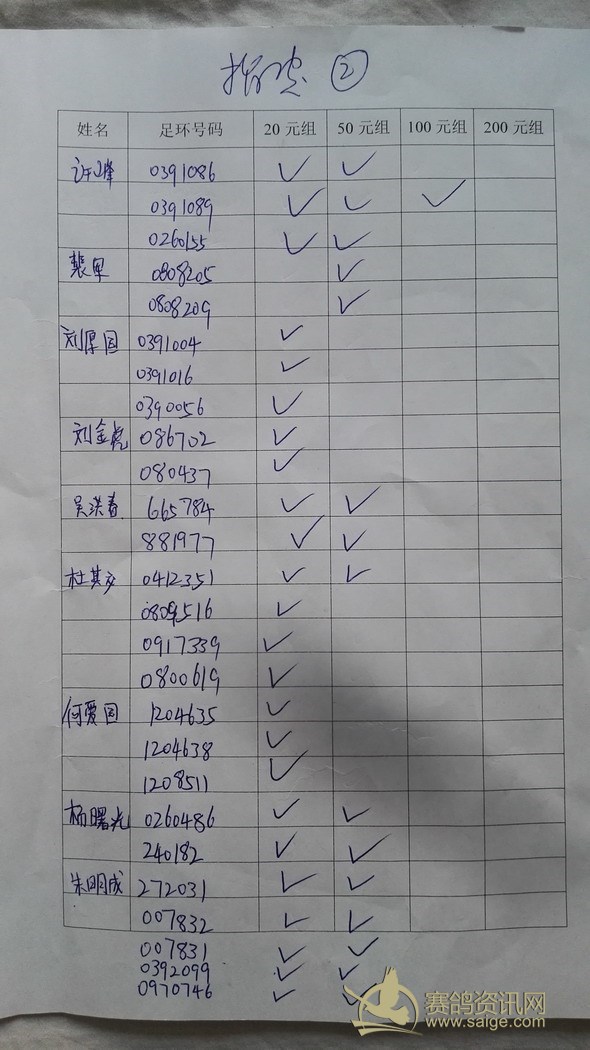 指定 ②
姓名 足环号码 20 元组 50 元组 100 元组 200 元组
许峰 0391086 ✓ ✓
0391089 ✓ ✓ ✓
0260155 ✓ ✓
裴军 0808205 ✓
0808209 ✓
刘厚国 0391004 ✓
0391016 ✓
0390056 ✓
刘金虎 086702 ✓
080437 ✓
吴洪春 665784 ✓ ✓
881977 ✓ ✓
杜其 0412351 ✓ ✓
0809516 ✓
0917339 ✓
0800619 ✓
何爱国 1204635 ✓
1204638 ✓
1208511 ✓
杨曙光 0260486 ✓ ✓
240182 ✓ ✓
朱明成 272031 ✓ ✓
007832 ✓ ✓
007831 ✓ ✓
0392099 ✓ ✓
0970746 ✓ ✓
赛鸽资讯网
www.saige.com